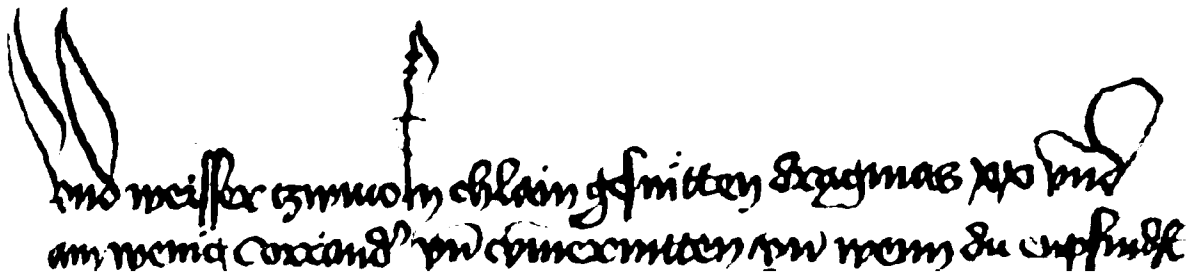 vnd weisser tzwivoln chlain gesnitten dragmas xx vnd
ain wenig Coriand' vn̄ cymermitten vn̄ wenn du enpfindest